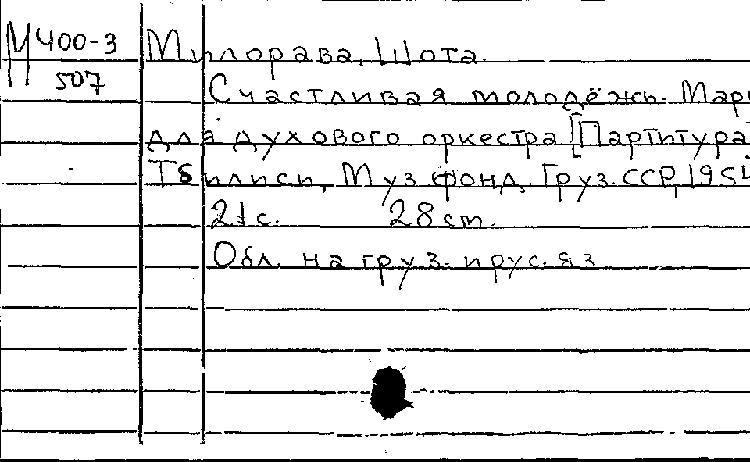 М 400-3
507
Милорава, Шота
Счастливая молодёжь. Мар
для духового оркестра [Партитура
Тбилиси, Муз. фонд. Груз. ССР, 1954
21 с. 28 cm.
Обл. на груз. и рус. яз